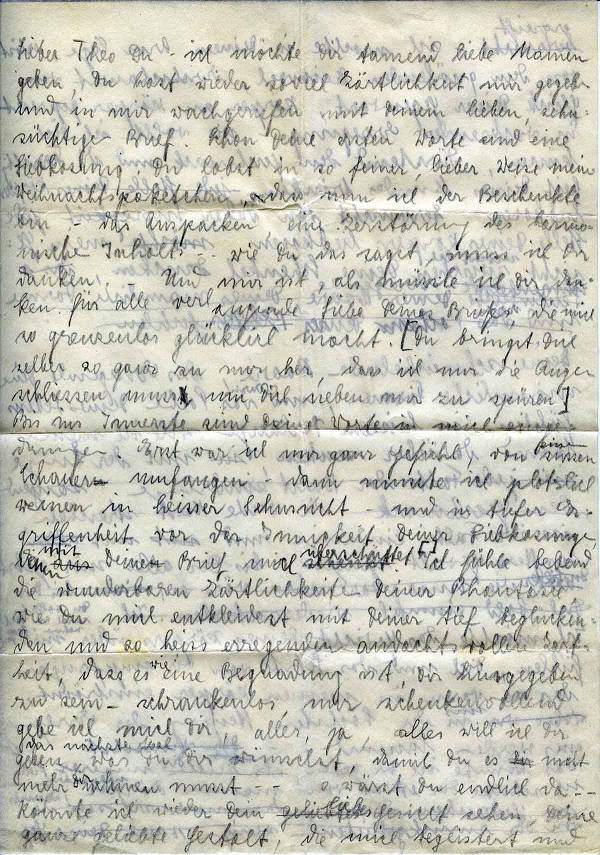 Lieber Theo Du - ich möchte dir tausend liebe Namen
geben, Du hast wieder soviel Zärtlichkeit mir gegeben
und in mir wachgerufen mit deinem lieben, sehn-
süchtige Brief. Schon deine ersten Worte sind eine
Liebkosung, Du lobst in so feiner, lieber Weise mein
Weihnachtspaketchen, dass nun ich der Beschenkte
bin - das Auspacken eine Zerstörung des harmo-
nische Inhalts - wie du das sagst, muss ich Dir
danken. - Und mir ist, als müsste ich dir dan-
ken für alle verlangende Liebe Deines Briefes, die mich
so grenzenlos glücklich macht. [Du bringst Dich
selber so ganz zu mir her, dass ich nur die Augen
schliessen muss um Dich neben mir zu spüren]
Bis ins Innerste sind deine Worte in mich einge-
drungen. Erst war ich nur ganz Gefühl, von einem süssen
Schauer umfangen - dann musste ich plötzlich
weinen in heisser Sehnsucht - und in tiefer Er-
griffenheit vor der Innigkeit Deiner Liebkosunge,
mit denen Dein Brief mich überschüttet. Ich fühle bebend
die wunderbaren Zärtlichkeite Deiner Phantasie
wie du mich entkleidest mit Deiner tief beglücken-
den und so heiss erregenden andachtsvollen Zart-
heit, dass es wie eine Begnadung ist, dir hingegeben
zu sein - schrankenlos, nur schenkenwollend
gebe ich mich dir, alles, ja, alles will ich dir
das nächste Mal
geben, was du dir wünschst, damit du es nicht
mehr dir nehmen musst - - o wärst du endlich da -
könnte ich wieder dein liebes Gesicht sehen, deine
ganze geliebte Gestalt, die mich begeistert und